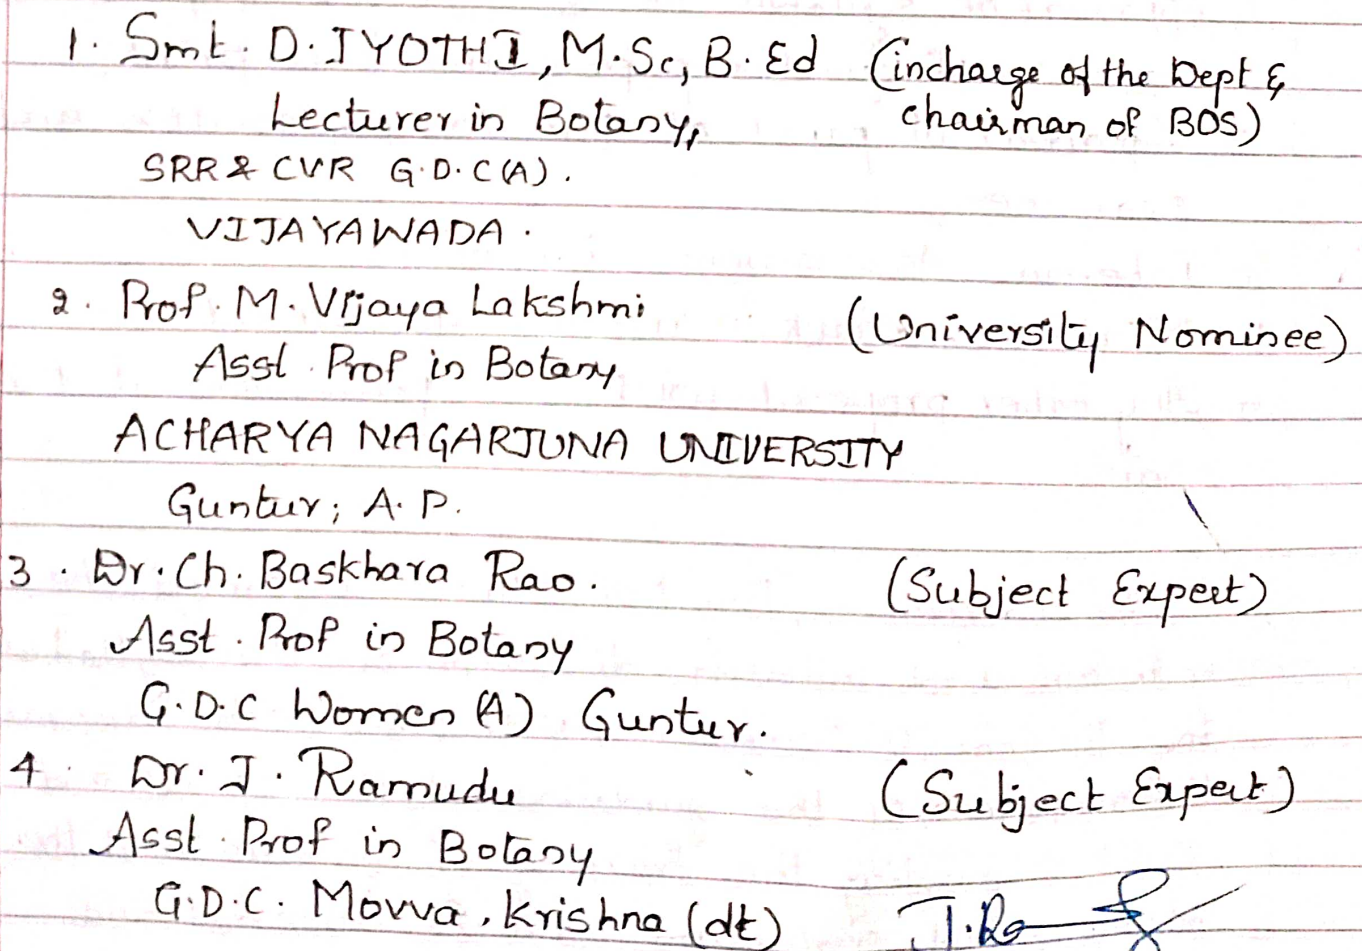 1. Smt. D. JYOTHI, M.Sc, B.Ed (incharge of the Dept &
Lecturer in Botany, chairman of BOS)
SRR & CVR G.D.C(A).
VIJAYAWADA.
2. Prof. M. Vijaya Lakshmi (University Nominee)
Asst. Prof in Botany
ACHARYA NAGARJUNA UNIVERSITY
Guntur; A.P.
3. Dr. Ch. Baskhara Rao. (Subject Expert)
Asst. Prof in Botany
G.D.C Women (A) Guntur.
4. Dr. J. Ramudu (Subject Expert)
Asst. Prof in Botany
G.D.C. Movva, Krishna (dt)